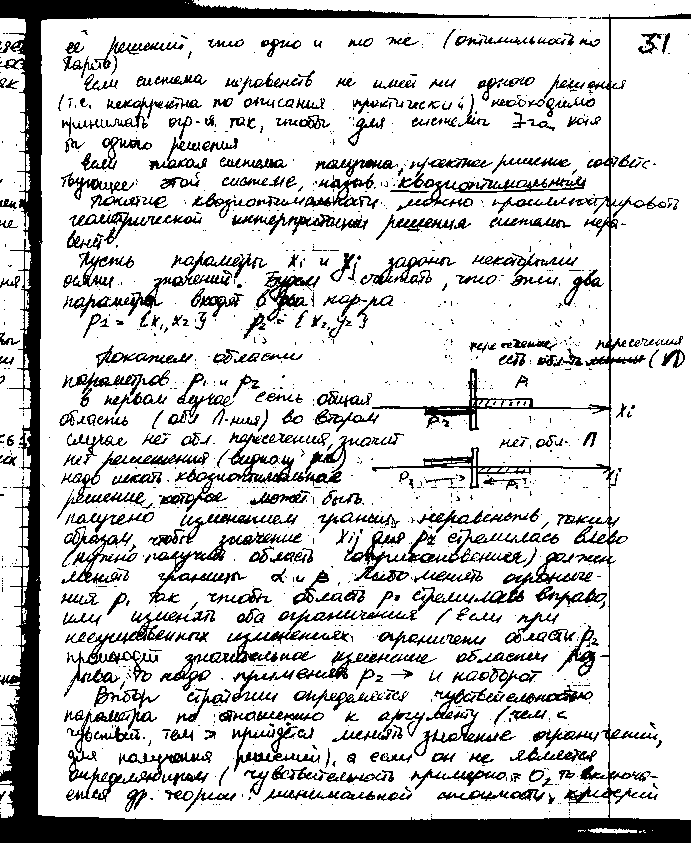 её решений, что одно и то же (оптимальность по
Парето)
51
Если система неравенств не имеет ни одного решения
(т.е. некорректна по описания практически) необходимо
принимать огр-я так, чтобы для системы
бы одного решения
Если такая система получена, практ-ое решение, соответс-
твующее этой системе, назыв. квазиоптимальным
Понятие квазиоптимальности можно проиллюстрировать
геометрической интерпретации решения системы нера-
венств.
Пусть параметры xi и yj заданы некоторыми
осями значений. Будем считать, что эти два
параметра входят в два нар-ра
P1 = {x1, x2} P2 = {x2, y2}
Покажем области
параметров P1 и P2.
В первом случае есть общая
область (обл П-ния) во втором
случае нет обл. пересечения, значит
нет решения
надо искать квазиоптимальное
решение, которое может быть
пересечение пересечения
есть обл-ть (П)
P1
P2
xi
нет обл. П
P2
P1
yj
получено изменением границ неравенств, таким
образом, чтобы значение xij для P2 стремилась влево
(нужно получить область соприкосновения) должен
менять границы α и β. Либо менять ограниче-
ния P1 так, чтобы область P2 стремилась вправо,
или изменять оба ограничения (если при
несущественных изменениях ограничени области P2
происходит значительное изменение области раз-
рыва, то надо применять P2 → и наоборот
Выбор стратегии определяется чувствительностью
параметра по отношению к аргументу (чем <
чувствит. тем > придётся менять значение ограничений,
для получения решений), а если он не является
определяющим (чувствительность примерно = 0, то включа-
ется др. теории: минимальной стоимости, критерий